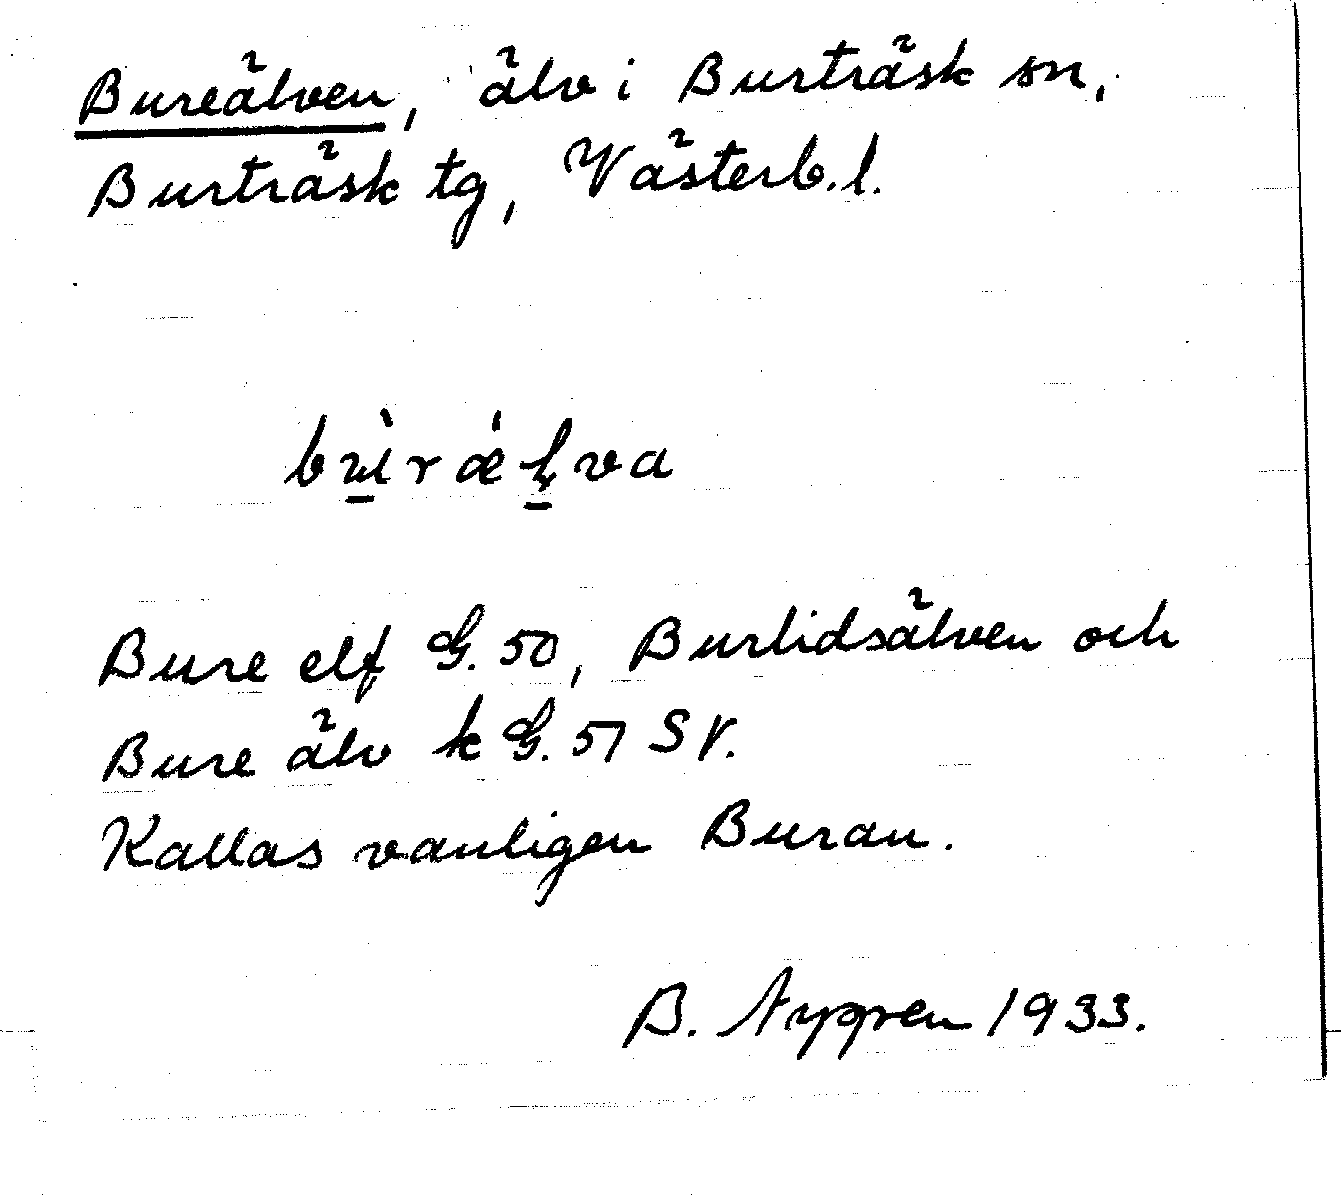 Bureälven, älv i Burträsk sn,
Burträsk tg, Västerb. l.
bù̲rǽl̲va
Bure elf G. 50, Burlidsälven och
Bure älv k G. 51 SV.
Kallas vanligen Buran.
B. Nygren 1933.